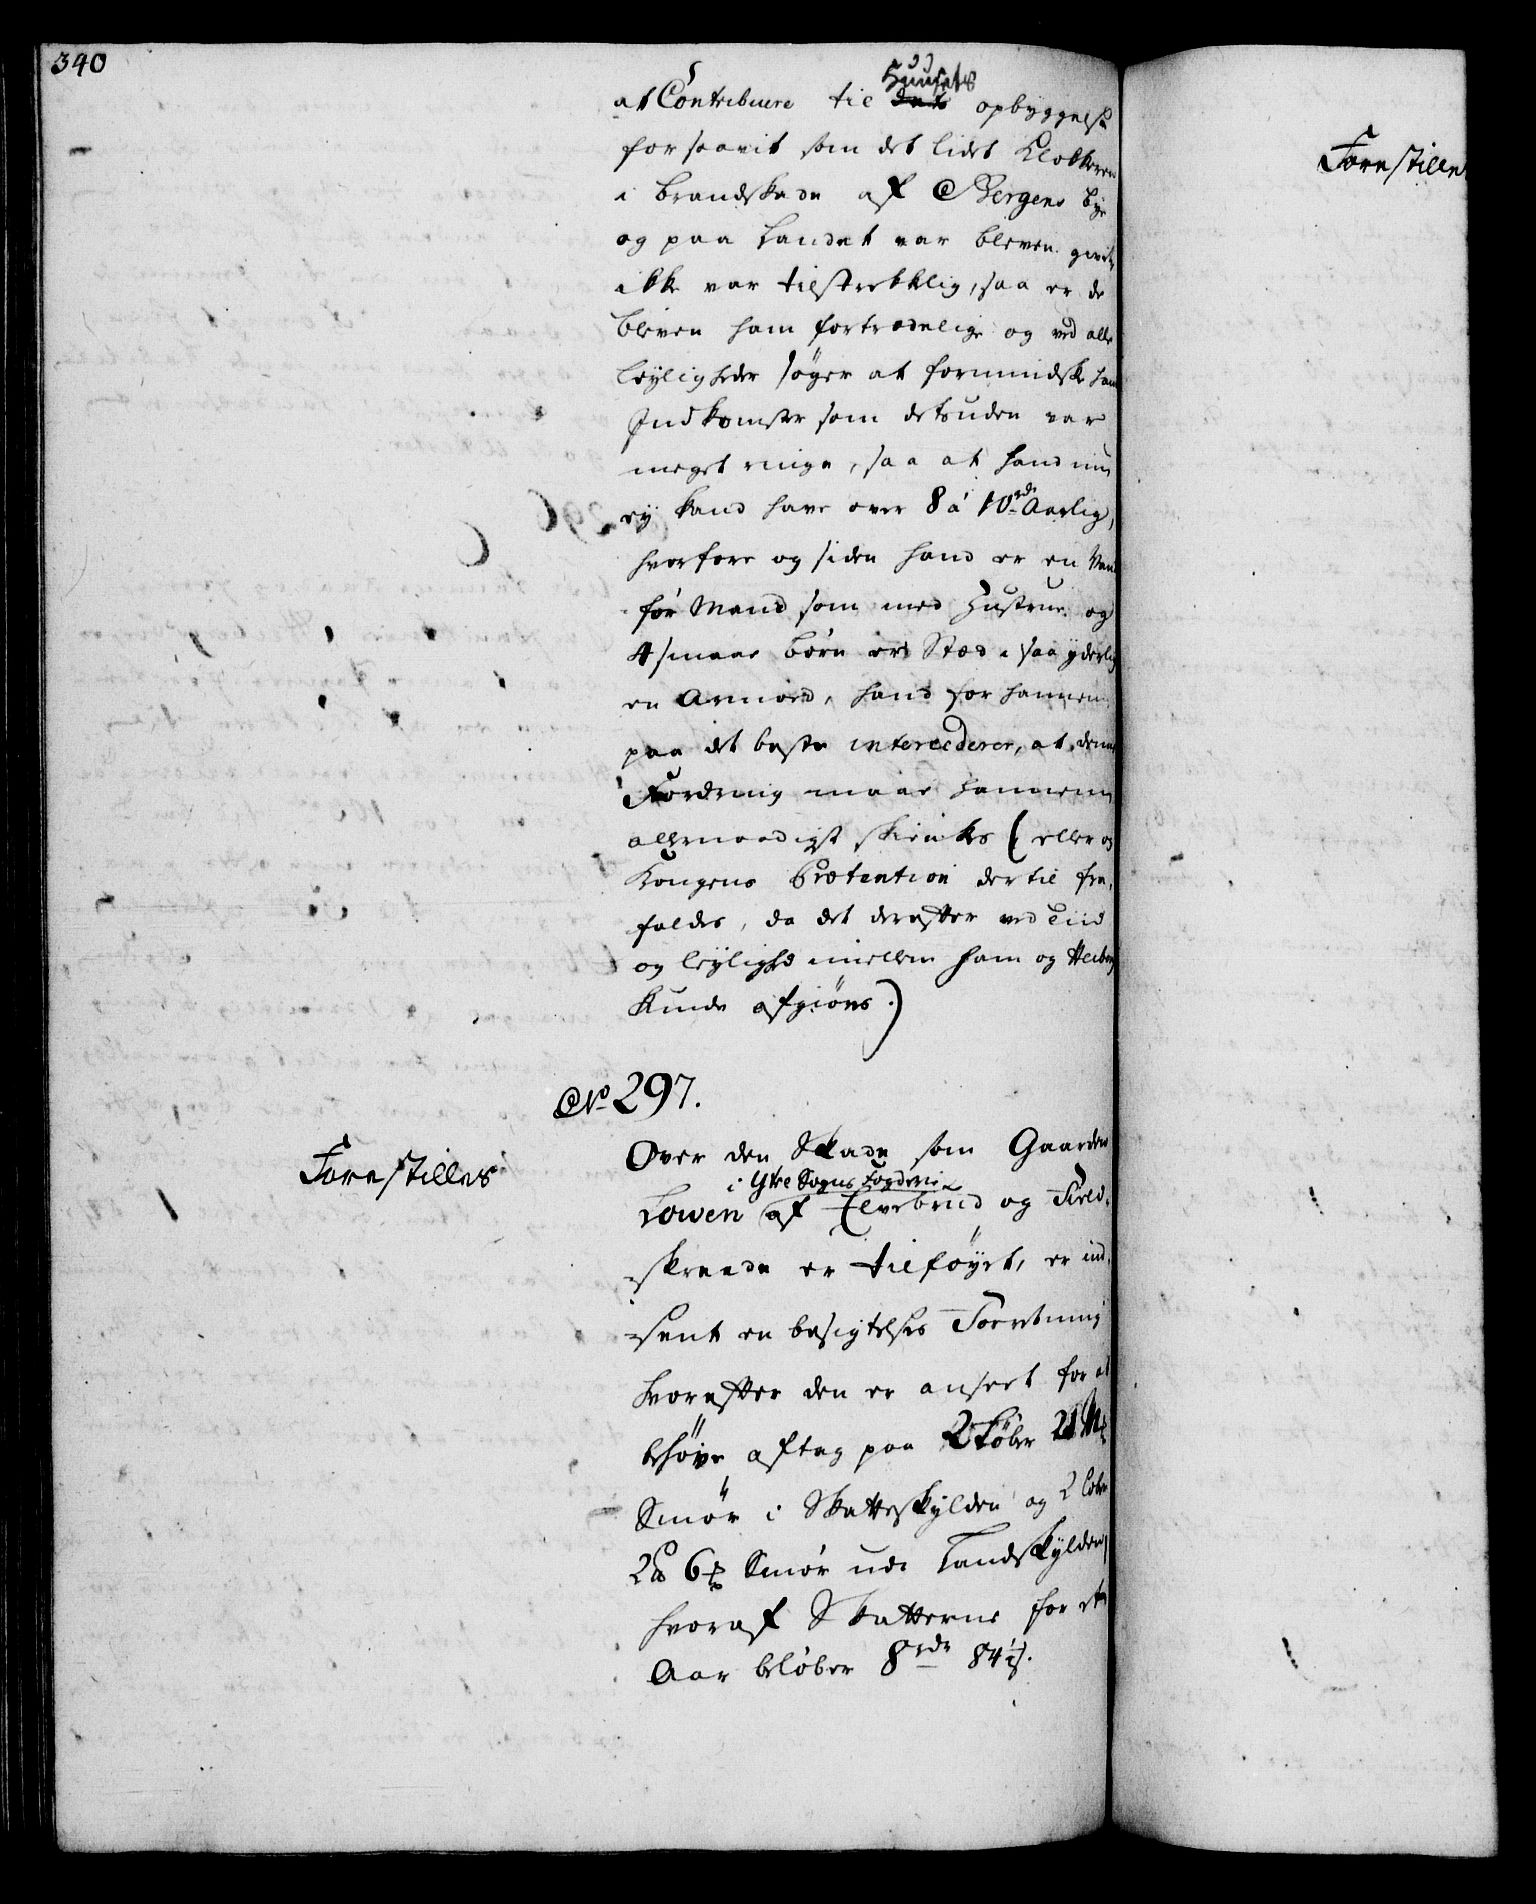 340
at Contribuere til Huusets dets opbyggelse
for saavit som det lidet Klokkeren
i brandskade af Bergens bye
og paa Landet var bleven givet
ikke var tilstrekkelig, saa er de
bleven ham fortrædelige og ved alle
leyligheder søger at formindske hans
Indkomster som desuden var
meget ringe, saa at hand nu
ey kand have over 8 á 10 rdr Aarlig,
hvorfore og siden hand er en Van¬
før Mand som med Hustrue og
4 smaae børn er Stæd i saa yderlig
en Armod, hand for hannem
paa det beste intercederer, at denne
Fordring maae hannem
allernaadigst skienkes (eller og
Kongens Prætention dertil fra¬
faldes, da det derefter ved Tiid
og leylighed imellem ham og Heiberg
Kunde afgiøres.)
No 297.
Forestilles
Over den Skade som Gaarden
i Ytre Sogns Fogderie
Lowen af Elvebrud og Field¬
skreede er tilføyet, er ind¬
sent en besigtelses Forretning
hvorefter den er anseet for at
behøve aftag paa 2 Løber 21 Mk
Smør i Skatteskylden og 2 Løber
2 pd 6 mk Smør udi Landskylden,
hvoraf Skatterne for et
Aar beløber 8 rdr 84 ½ s.
Forestilles